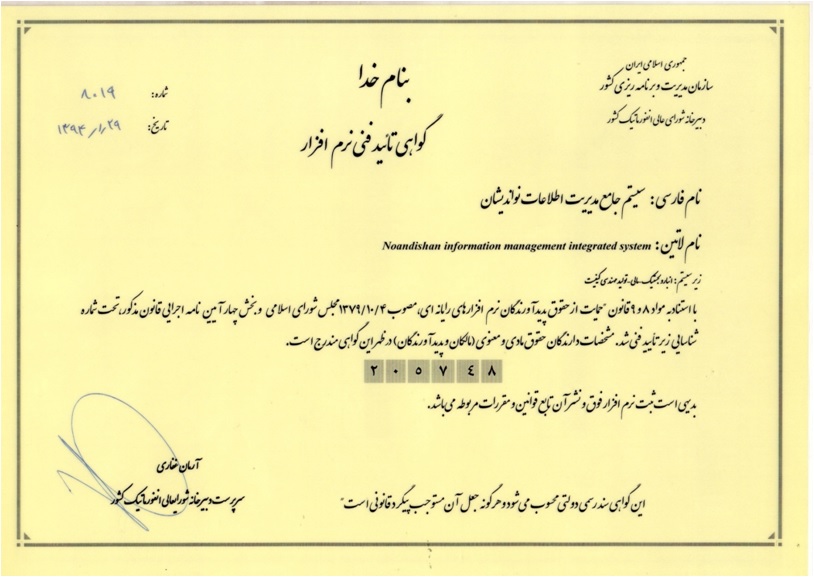 جمهوری اسلامی ایران
سازمان مدیریت و برنامه ریزی کشور
دبیرخانه شورای عالی انفورماتیک کشور
بنام خدا
گواهی تأئید فنی نرم افزار
شماره: ۸۰۱۹
تاریخ: ۱۳۹۴/۱/۲۹
نام فارسی: سیستم جامع مدیریت اطلاعات نواندیشان
نام لاتین: Noandishan information management integrated system
زیر سیستم: انبار، لجستیک، مالی، تولید، مهندسی کیفیت
با استناد به مواد ۸ و ۹ قانون "حمایت از حقوق پدیدآورندگان نرم افزارهای رایانه ای، مصوب ۱۳۷۹/۱۰/۴ مجلس شورای اسلامی و بخش چهار آیین نامه اجرایی قانون مذکور، تحت شماره
شناسایی زیر تأیید فنی شد. مشخصات دارندگان حقوق مادی و معنوی (مالکان و پدیدآورندگان) در ظهر این گواهی مندرج است.
۲۰۵۷٤۸
بدیهی است ثبت نرم افزار فوق و نشر آن تابع قوانین و مقررات مربوطه می باشد.
آرمان غفاری
سرپرست دبیرخانه شورایعالی انفورماتیک کشور
این گواهی سند رسمی دولتی محسوب می شود و هرگونه جعل آن مستوجب پیگرد قانونی است"